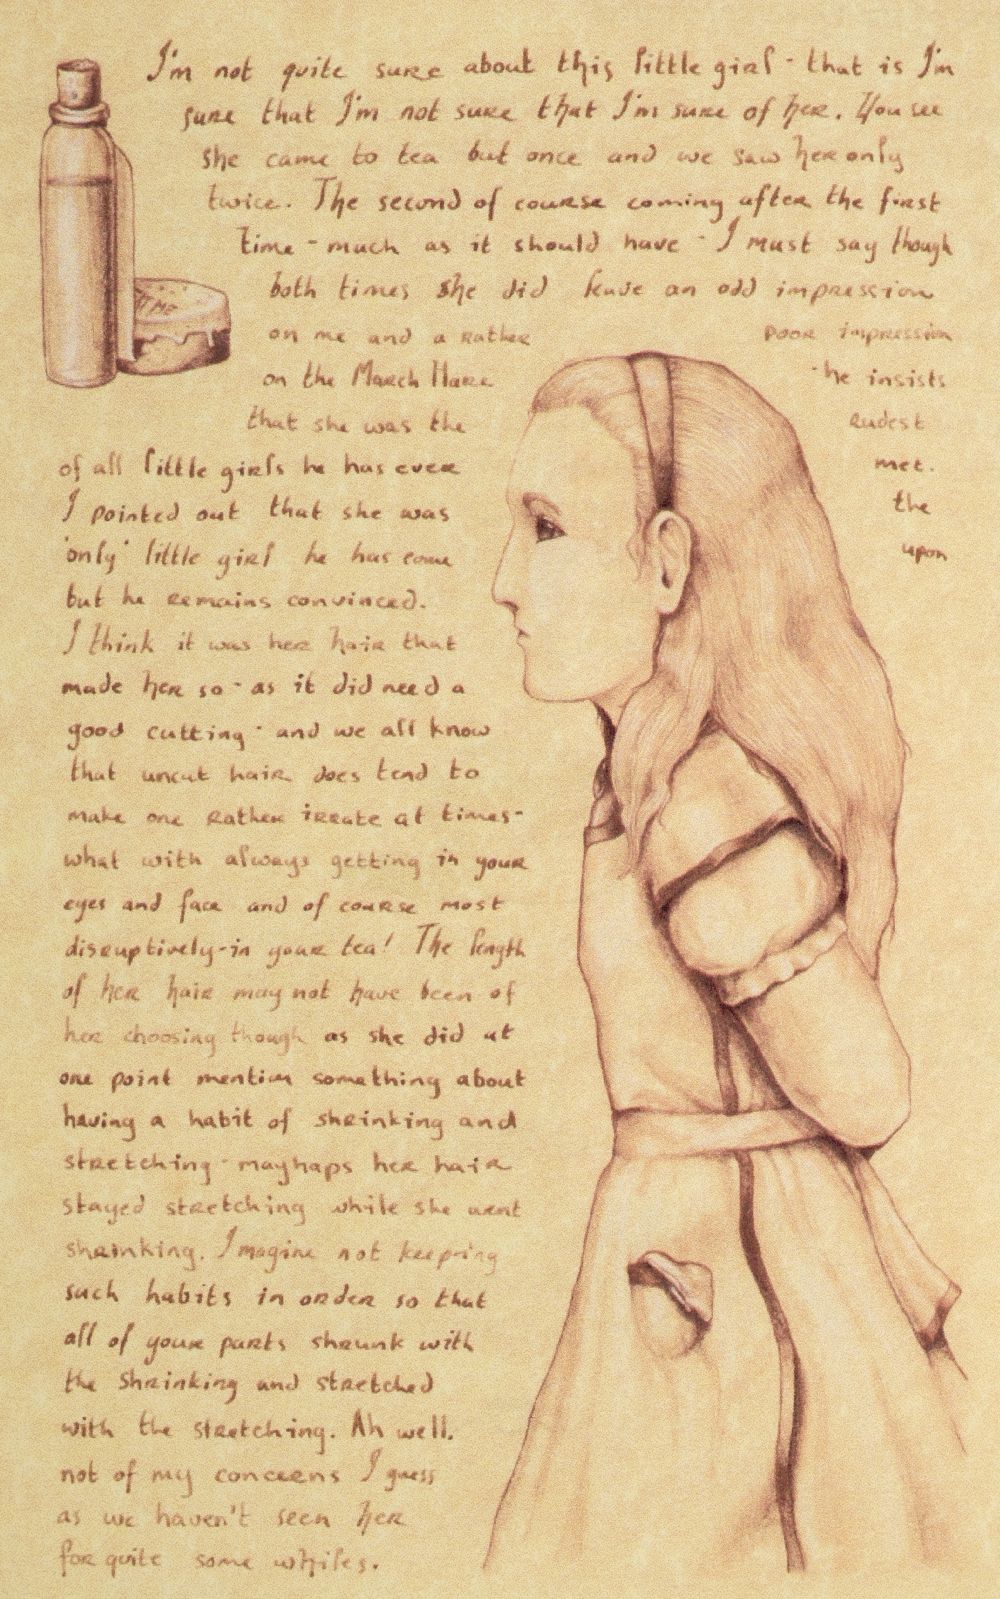 I'm not quite sure about this little girl - that is I'm
sure that I'm not sure that I'm sure of her. You see
she came to tea but once and we saw her only
twice. The second of course coming after the first
time - much as it should have - I must say though
both times she did leave an odd impression
on me and a rather poor impression
on the March Hare - he insists
that she was the rudest
of all little girls he has ever met.
I pointed out that she was the
'only' little girl he has come upon
but he remains convinced.
I think it was her hair that
made her so - as it did need a
good cutting - and we all know
that uncut hair does tend to
make one rather irrate at times -
what with always getting in your
eyes and face and of course most
disruptively - in your tea! The length
of her hair may not have been of
her choosing though as she did at
one point mention something about
having a habit of shrinking and
stretching - mayhaps her hair
stayed stretching while she went
shrinking. Imagine not keeping
such habits in order so that
all of your parts shrunk with
the shrinking and stretched
with the stretching. Ah well.
not of my concerns I guess
as we haven't seen her
for quite some whiles.
ME